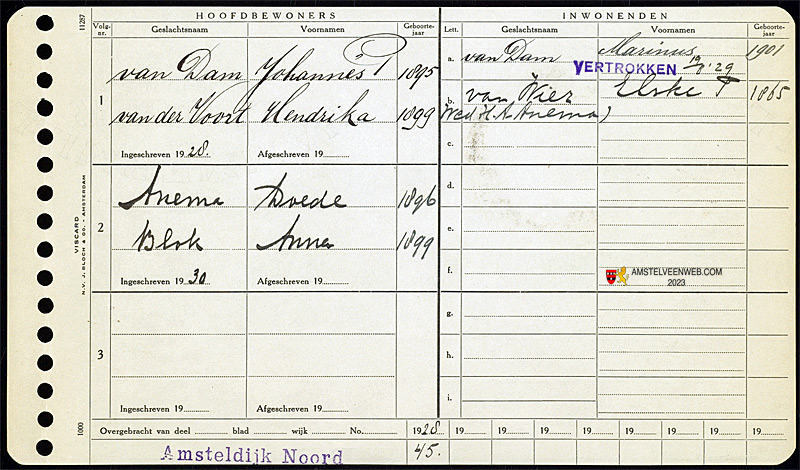 HOOFDBEWONERS
INWONENDEN
11287
Volg-nr.
Geslachtsnaam
Voornamen
Geboorte-jaar
Lett.
Geslachtsnaam
Voornamen
Geboorte-jaar
1
van Dam Johannes P 1895
van der Voort Hendrika 1899
Ingeschreven 1928. Afgeschreven 19
2
Anema Doede 1896
Blok Anna 1899
Ingeschreven 1930 Afgeschreven 19
3
Ingeschreven 19 Afgeschreven 19
a. van Dam Marinus 1901
VERTROKKEN 19/8 '29
b. van Wier Elske F 1865
(Wed. H. A. Anema)
c.
d.
e.
f.
AMSTELVEENWEB.COM
2023
g.
h.
i.
VISCARD
N.V. J. BLOCH & CO. - AMSTERDAM
1000
Overgebracht van deel blad wijk No.
1928 19 19 19 19 19 19 19 19
Amsteldijk Noord 45.